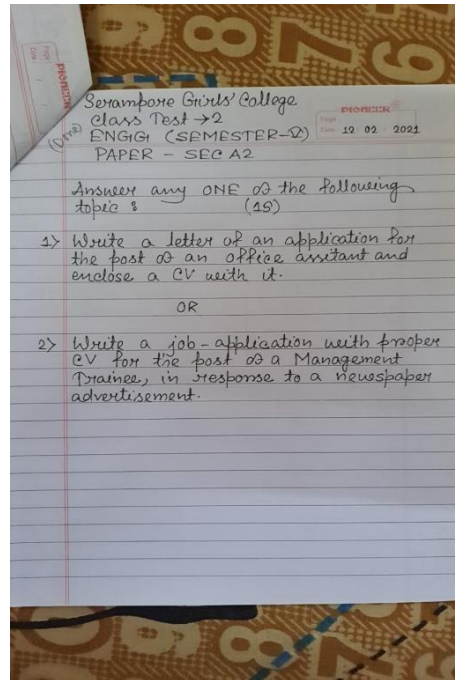 PIONEER
Page
Date
Serampore Girls' College
Class Test → 2
PIONEER
Page
Date 12 02 2021
(Done) ENGG (SEMESTER-V)
PAPER - SEC A2
Answer any ONE of the following
topic : (15)
1> Write a letter of an application for
the post of an office assitant and
enclose a CV with it.
OR
2> Write a job-application with proper
CV for the post of a Management
Trainee, in response to a newspaper
advertisement.